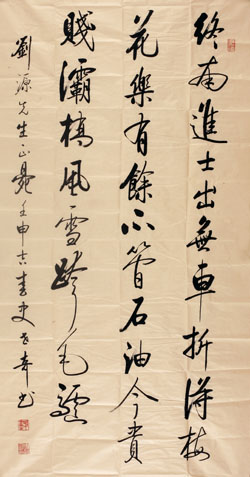 終南進士出無車折得梅
花樂有餘不管石油今貴
賤灞橋風雪跨毛驢
劉源先生正 壬申吉春史 書